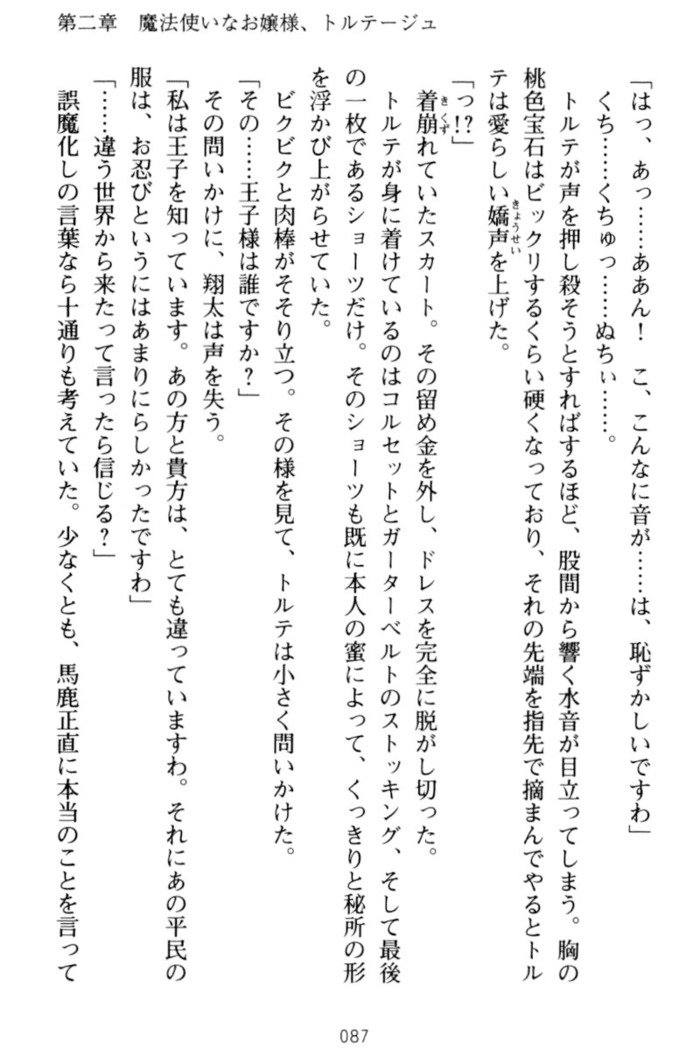 第二章　魔法使いなお嬢様、トルテージュ
「はっ、あっ……ああん！　こ、こんなに音が……は、恥ずかしいですわ」
くち……くちゅっ……ぬちぃ……。
トルテが声を押し殺そうとすればするほど、股間から響く水音が目立ってしまう。胸の
桃色宝石はビックリするくらい硬くなっており、それの先端を指先で摘まんでやるとトル
テは愛らしい嬌声を上げた。
きょうせい
「っ!?」
着崩れていたスカート。その留め金を外し、ドレスを完全に脱がし切った。
きくず
トルテが身に着けているのはコルセットとガーターベルトのストッキング、そして最後
の一枚であるショーツだけ。そのショーツも既に本人の蜜によって、くっきりと秘所の形
を浮かび上がらせていた。
ビクビクと肉棒がそそり立つ。その様を見て、トルテは小さく問いかけた。
「その……王子様は誰ですか？」
その問いかけに、翔太は声を失う。
「私は王子を知っています。あの方と貴方は、とても違っていますわ。それにあの平民の
服は、お忍びというにはあまりにらしかったですわ」
「……違う世界から来たって言ったら信じる？」
誤魔化しの言葉なら十通りも考えていた。少なくとも、馬鹿正直に本当のことを言って
087